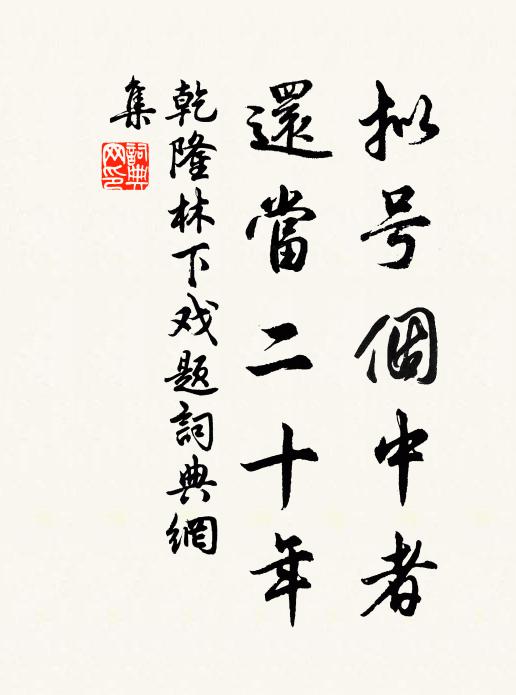 拟号個中者
還當二十年
乾隆林下戏题詞典網
集
詞典
网印